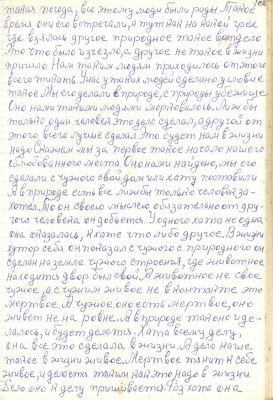 такая погода, все этому люди были рады. Такое
время они его встречали, а тут как на какой грех
где взялась другое природное такое
Это что было изчезло, а другое не такое в жизни
пришло. Нам таким людям приходилось от этого
всего тикать. У нас у таких людей сделано условие
такое. Мы его делали в природе, с природы убежище.
Оно нами такими людьми мерховалось. Лиж бы
только один человек это дело сделал, а другой от
этого всего лучше сделал. Это будет нам в жизни
надо. Скажем мы за первое такое начало нашего
облюбованного места. Оно нами найдено, мы его
сделали с чужого свой дом или хату поставили.
А в природе есть все лиж бы только человек за-
хотел. То он своею мыслею обязательно от дру-
гого человека он добьется. У одного хата не одна
она оказалась, к хате что либо другое. В жизни
хутор себя он показал с чужого с природного он
сделан на земле чужого строения, где животное
находить двор был свой. А животное не свое
чужое, а с чужим живое не в контакте это
мертвое. А чужое оно есть мертвое, оно
живет не на ровне. А в природе так оно и де-
лалось, и будет делатся. Хата всему делу,
она все это сделала в жизни. А дело наше
такое в жизни живое. Мертвое тянить к себе
живое, и делается таким как это надо в жизни.
Дело оно к делу пришивается. Раз хата она